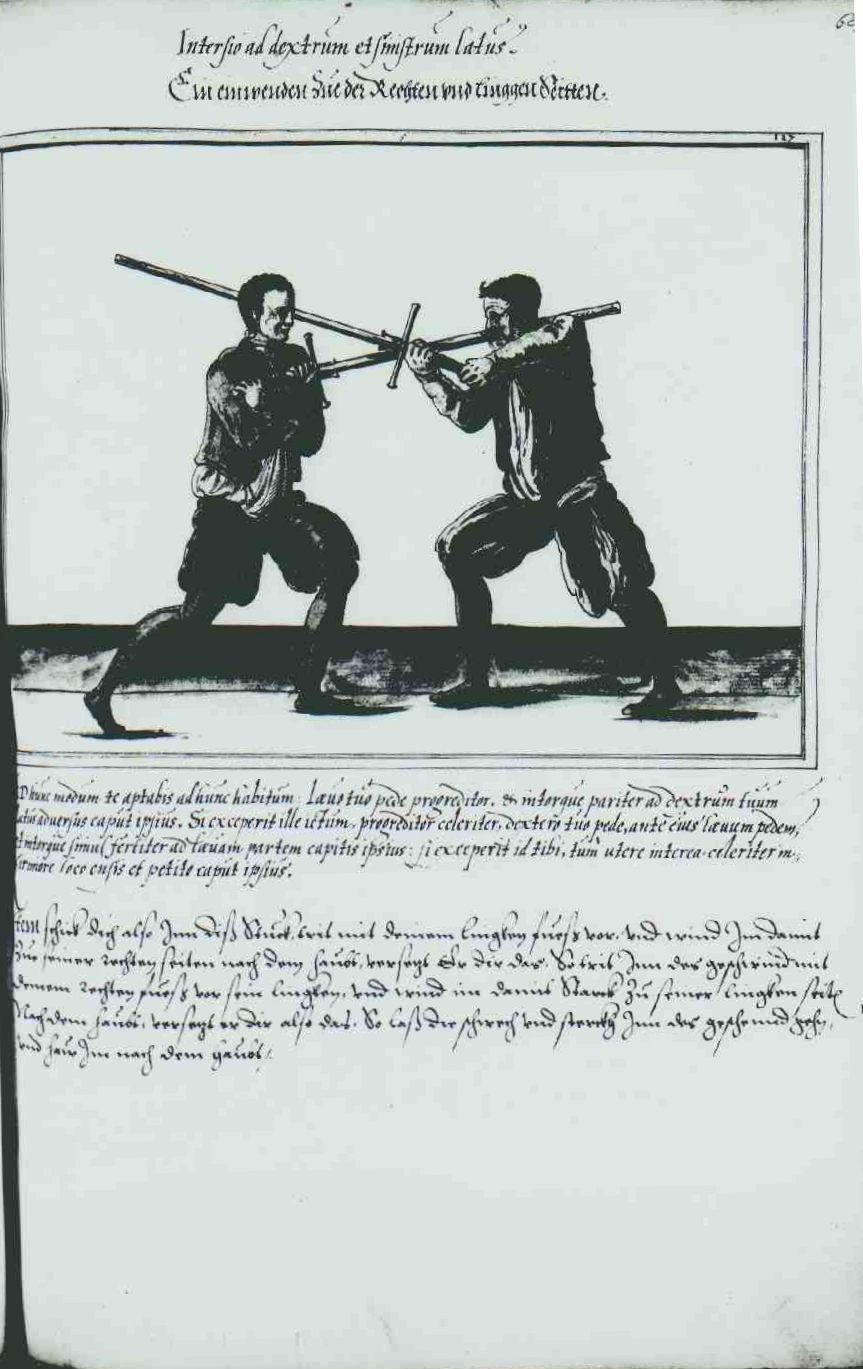 6
Intersio ad dextrum et sinistrum latus.
Ein einwenden Zue der Rechten vnd linggen Seitten.
127
D hunc modum te aptabis ad hunc habitum: Læuo tuo pede progreditor, & intorque pariter ad dextrum suum
latus aduersus caput ipsius. Si exceperit ille ictum, progreditor celeriter, dextero tuo pede, ante eius læuum pedem,
et intorque simul fortiter ad læuam partem capitis ipsius: si exceperit id tibi, tum utere interea celeriter in=
firmiore loco ensis et petito caput ipsius.
tem schick dich also Inn diß Stuck, trit mit deinem lingken fuess vor, vnd wind Im damit
Zue seiner rechten seiten nach dem haubt, versetzt Er dir das, So trit Inn des geschwind mit
deinem rechten fuess vor sein lingken, vnd wind im damit Starck Zu seiner lingken seite
Nach dem haubt, versetzt er dir also das, So laß die schwech vnd sterckh Inn des geschwind gehn,
vnd haw Im nach dem haubt.